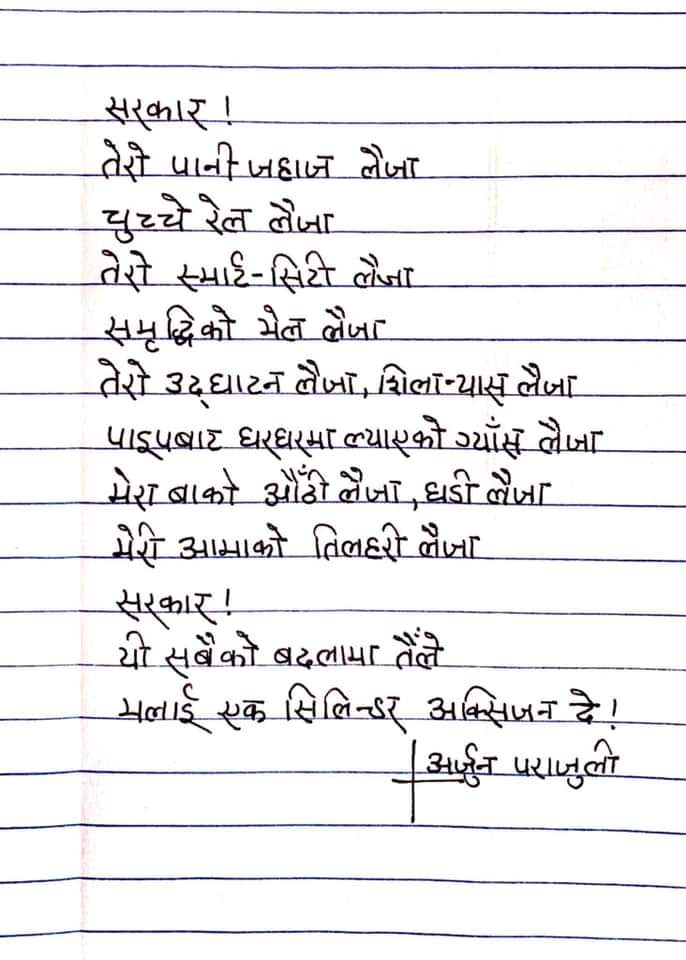 सरकार !
तेरो पानी जहाज लैजा
चुच्चे रेल लैजा
तेरो स्मार्ट-सिटी लैजा
समृद्धिको मेल लैजा
तेरो उद्घाटन लैजा, शिलान्यास लैजा
पाइपबाट घरघरमा ल्याएको ग्याँस लैजा
मेरा बाको औँठी लैजा, घडी लैजा
मेरी आमाको तिलहरी लैजा
सरकार !
यी सबैको बदलामा तैँले
मलाई एक सिलिन्डर अक्सिजन दे !
अर्जुन पराजुली